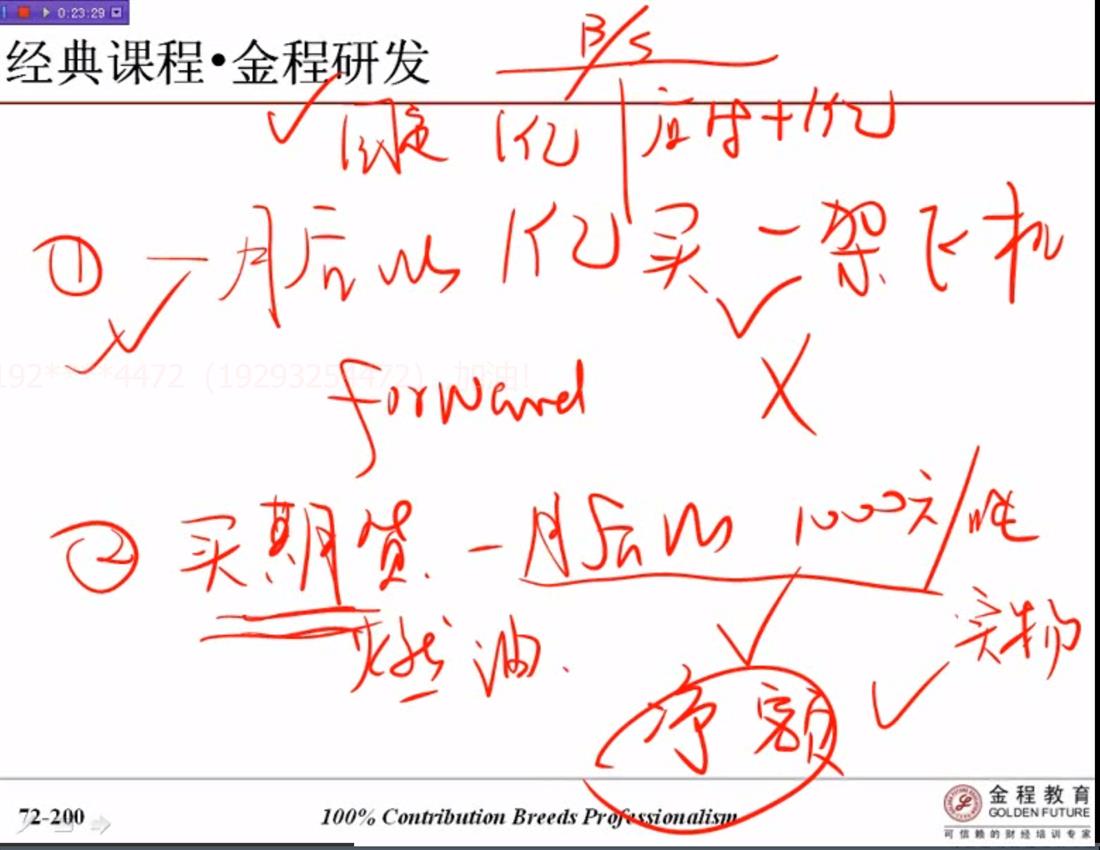 0:23:29
经典课程•金程研发
B/S
固定 1亿 应付+1亿
① 一月后以1亿买一架飞机
192****4472(19293254472) 加油!
forward
② 买期货 一月后以 1000元/吨
燃油 实物
净额
72-200
100% Contribution Breeds Professionalism
金程教育
GOLDEN FUTURE
可信赖的财经培训专家